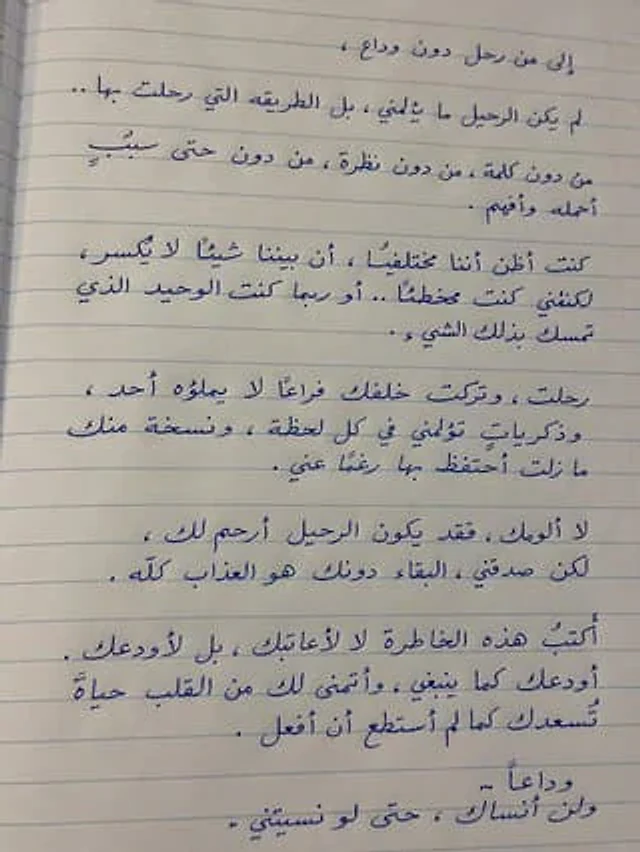 إلى من رحل دون وداع ،
لم يكن الرحيل ما يؤلمني ، بل الطريقه التي رحلت بها ..
من دون كلمة ، من دون نظرة ، من دون حتى سببٍ
أحمله وأفهم .
كنت أظن أننا مختلفين ، أن بيننا شيئًا لا يُكسر ،
لكنني كنت مخطئًا .. أو ربما كنت الوحيد الذي
تمسك بذلك الشيء .
رحلت ، وتركت خلفك فراغًا لا يملؤه أحد ،
وذكرياتٍ تؤلمني في كل لحظة ، ونسخة منك
ما زلت أحتفظ بها رغمًا عني .
لا ألومك ، فقد يكون الرحيل أرحم لك ،
لكن صدقني ، البقاء دونك هو العذاب كلّه .
أكتبُ هذه الخاطرة لا لأعاتبك ، بل لأودعك .
أودعك كما ينبغي ، وأتمنى لك من القلب حياةً
تُسعدك كما لم أستطع أن أفعل .
وداعاً ..
ولن أنساك ، حتى لو نسيتني .